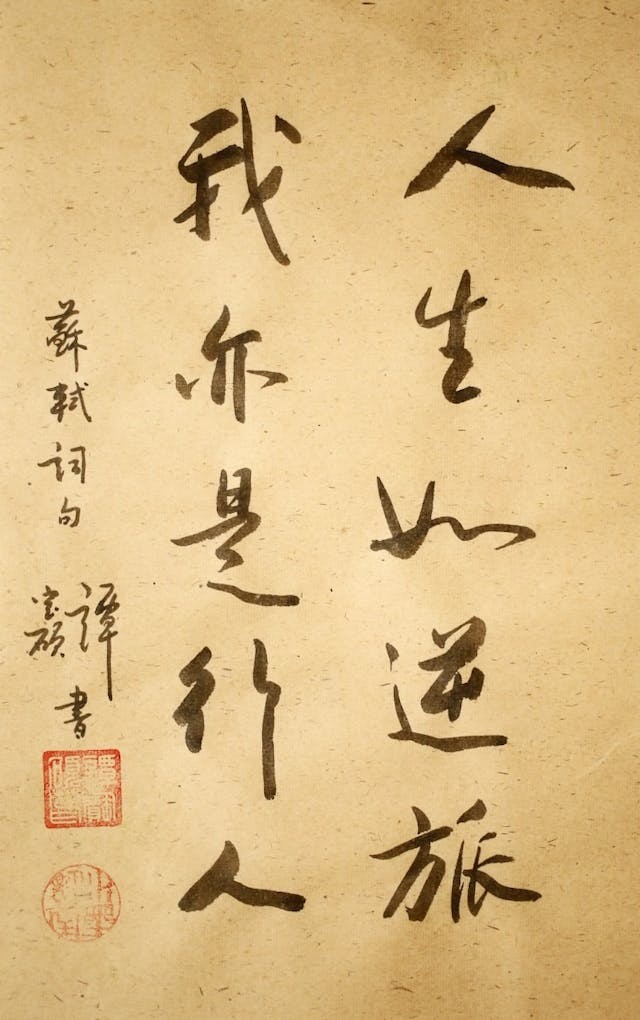 人生如逆旅
我亦是行人
蘇軾詞句
譚寶碩書